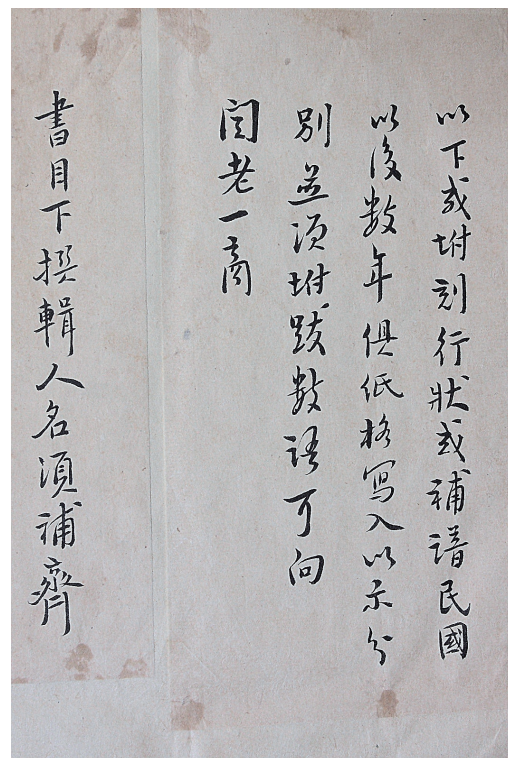 以下或坿刻行狀或補譜民國
以後數年俱低格寫入以示分
別並須坿跋數語可向
閏老一商
書目下撰輯人名須補齊